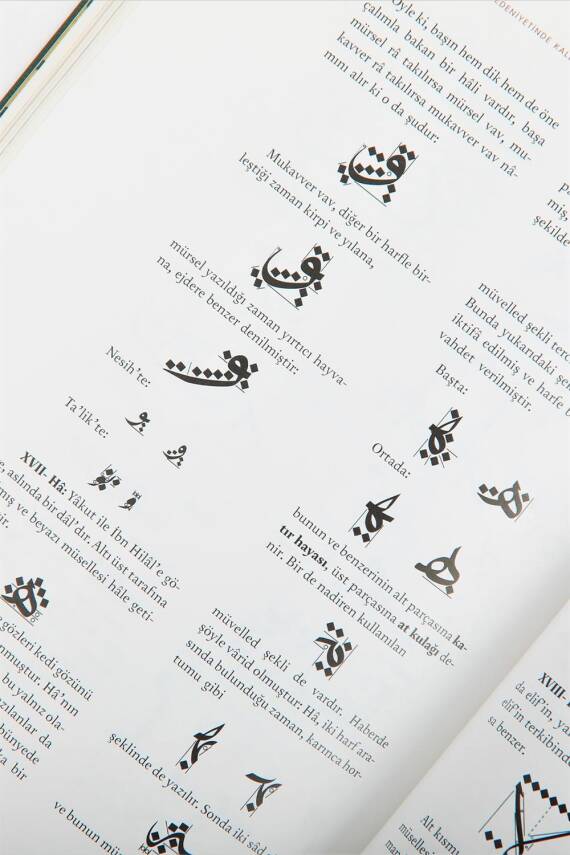 Öyle ki, başın hem dik hem de öne
çalımla bakan bir hâli vardır, başa
mürsel râ takılırsa mürsel vav, mu-
kavver râ takılırsa mukavver vav nâ-
mını alır ki o da şudur:
Mukavver vav, diğer bir harfle bir-
leştiği zaman kirpi ve yılana,
mürsel yazıldığı zaman yırtıcı hayva-
na, ejdere benzer denilmiştir:
Nesih'te:
Ta'lik'te:
XVII- Hâ: Yâkut ile İbn Hilâl'e gö-
aslında bir dâl'dır. Altı üst tarafına
ve beyazı müsellesi hâle geti-
gözleri kedi gözünü
Hâ'nın
bu yalnız ola-
bünyede
bir
müvelled şekli
Bunda yukarıdaki
iktifâ edilmiş ve harfe
vahdet verilmiştir.
Başta:
Ortada:
bunun ve benzerinin alt parçasına ka-
tır hayası, üst parçasına at kulağı de-
nir. Bir de nadiren kullanılan
müvelled şekli de vardır. Haberde
şöyle vârid olmuştur: Hâ, iki harf ara-
sında bulunduğu zaman, karınca hor-
tumu gibi
şeklinde de yazılır. Sonda iki
ve bunun
şekilde
XVIII-
da elif'in,
elif'in terkibinden
sa benzer.
Alt